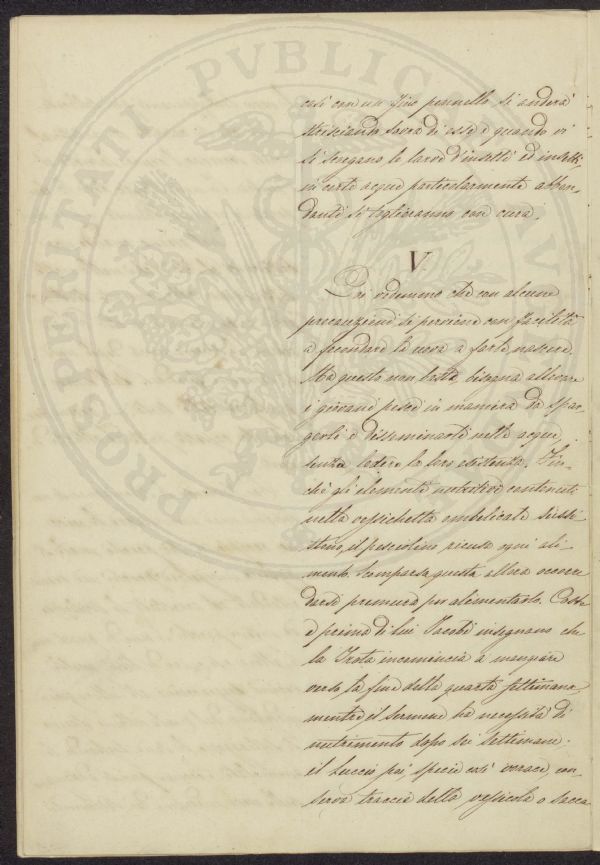 PROSPERITATI PVBLICAE AV
così con un fino pennello si anderà
strisciando sovra di esse e quando vi
si scorgano le larve d'insetti ed insetti,
in certe acque particolarmente abbon-
danti si toglieranno con cura.
V.
Poi vedemmo che con alcune
precauzioni si perviene con facilità
a fecondare le uova a farle nascere.
Ma questo non basta bisogna allevare
i giovani pesci in maniera da spar-
gerli e disseminarli nelle acque
senza ledere la loro esistenza. Fin-
chè gli elementi nutritivi contenuti
nella vessichetta ombelicale sussi-
stono, il pesciolino ricusa ogni ali-
mento. Scomparsa questa allora occorre
darsi premura per alimentarlo. Coste
e prima di lui Jacobi insegnano che
la Trota incomincia a mangiare
verso la fine della quarta settimana
mentre il sermone ha necessità di
nutrimento dopo sei settimane:
il Luccio poi, specie così vorace, con-
serva traccie della vessicola o sacca